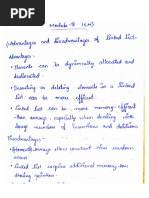 Module - 3 (SM)
1) Advantages and Disadvantages of linked list.
Advantages :-
• Elements can be dynamically allocated and
deallocated
• Inserting or deleting elements is a linked
list can be more efficient.
• Linked list can be more memory-efficient
than arrays, especially when dealing with
large numbers of insertions and deletions
Disadvantages :-
allow constant-time random
access
• Linked list require additional memory for
storing pointers.